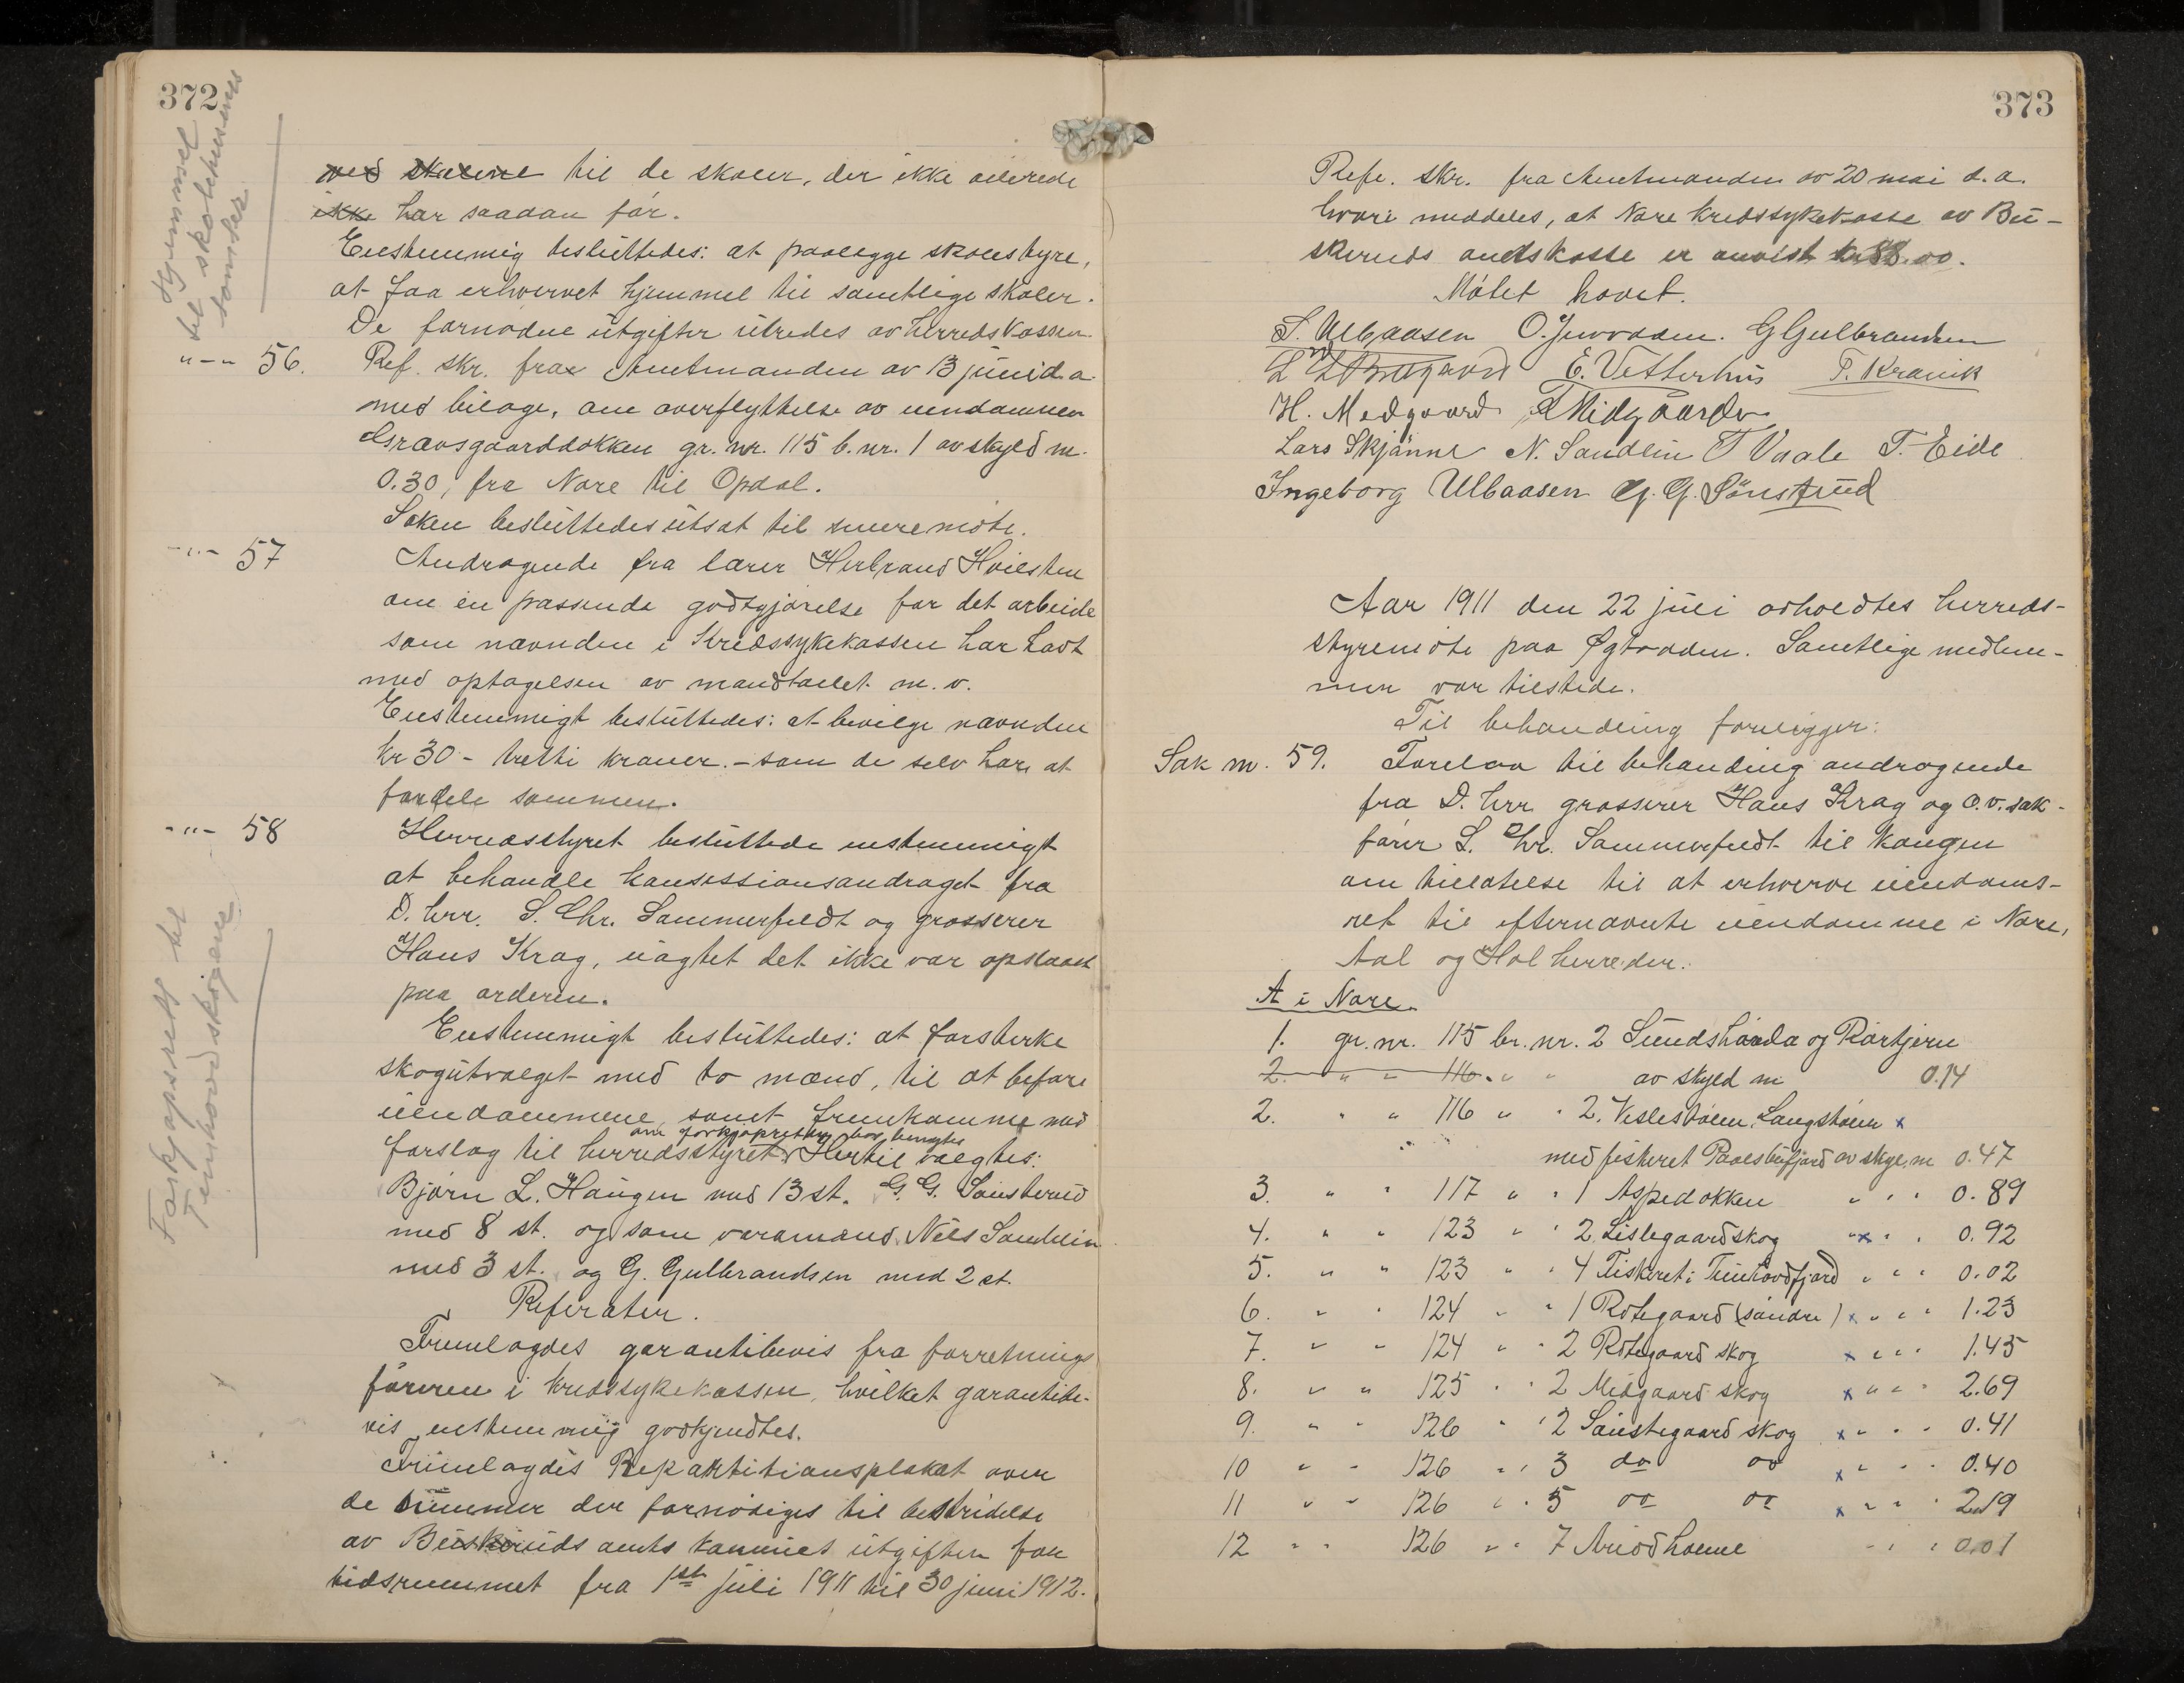 372
Hjemmel
til skolehusenes
tomter
ved skolene til de skoler, der ikke allerede
ikke har saadan før.
Enstemmig besluttedes: at paalegge skolestyre,
at faa erhvervet hjemmel til samtlige skoler.
De fornødne utgifter utredes av herredskassen.
"-" 56. Ref. skr. fra Amtmanden av 13 juni d.a.
med bilage, om overflyttelse av eiendommen
Gravsgaarddokken gr. nr. 115 b. nr. 1 av skyld m.
0.30, fra Nore til Opdal.
Saken besluttedes utsat til senere møte.
-"- 57 Andragende fra lærer Herbrand Hvilesten
om en passende godtgjørelse for det arbeide
som nævnden i Kredssykekassen har havt
med optagelsen av mandtallet m.v.
Enstemmigt besluttedes: at bevilge nævnden
kr 30 - tretti kroner. - som de selv har at
fordele sammen.
-"- 58 Herredsstyret besluttede enstemmigt
at behandle konsessionsandraget fra
D. hrr. S. Chr. Sommerfeldt og grosserer
Hans Krag, uagtet det ikke var opslaat
paa orderen.
Forkjøpsrett til
Tunhovdskogene
Enstemmigt besluttedes: at forsterke
skogutvalget med to mænd, til at befare
eiendommene, samt fremkomme med
om forkjøpsretten bør benyttes
forslag til herredsstyret. Hertil valgtes:
Bjørn L. Haugen med 13 st. G. G. Sønsterud
med 8 st. og som varamænd Nils Sandlein
med 3 st. og G. Gulbrandsen med 2 st.
Referater.
Fremlagdes garantibevis fra forretnings
føreren i kredssykekassen, hvilket garantibe-
vis enstemmig godkjendtes.
Fremlagdes Repartitionsplakat over
de summer der fornødiges til bestridelse
av Buskeruds amts kommunes utgifter for
tidsrummet fra 1st juli 1911 til 30 juni 1912.
373
Refe. skr. fra Amtmanden av 20 mai d.a.
hvori meddeles, at Nore kredssykekasse av Bu-
skeruds amtskasse er anvist kr 88.00.
Møtet hævet.
S. Ulbaasen O. Juvodden. G Gulbrandsen
E. Vetterhus T. Kravik
H. Medgaard Midgaarden
Lars Skjønne N. Sandlein T Vaale T. Eide
Ingeborg Ulbaasen G. G. Sønsterud
Aar 1911 den 22 juli avholdtes herreds-
styremøte paa Øgtodden. Samtlige medlem-
mer var tilstede.
Til behandling foreligger:
Sak nr. 59. Forelaa til behandling andragende
fra D. hrr grosserer Hans Krag og o.r. sak-
fører S. Chr. Sommerfeldt til kongen
om tillatelse til at erhverve eiendoms-
ret til efternævnte eiendomme i Nore,
Aal og Hol herreder.
A i Nore.
1. gr. nr. 115 br. nr. 2 Sundshaanda og Rørtjern
2. " " 116. " " av skyld m 0.14
2. " " 116 " " 2. Veslestølen, Langstølen x
med fiskeret Paalsbufjord av skyl. m 0.47
3. " " 117 " " 1 Aspedokken " " " 0.89
4. " " 123 " " 2 Lislegaardskog "x " " 0.92
5. " " 123 " " 4 Fiskeret i Tunhovdfjord " " " 0.02
6. " " 124 " " 1 Rotegaard (søndre) x " " " 1.23
7. " " 124 " " 2 Rotegaard skog x " " " 1.45
8. " " 125 " " 2 Midgaard skog x " " " 2.69
9. " " 126 " " 2 Sønstegaard skog x " " " 0.41
10 " " 126 " " 3 do do x " " " 0.40
11 " " 126 " " 5 do do x " " " 2.19
12 " " 126 " " 7 " " " 0.01